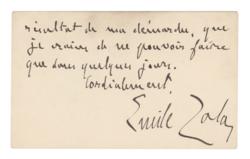 résultat de ma démarche, que
je crains de ne pouvoir faire
que dans quelques jours.
Cordialement.
Emile Zola